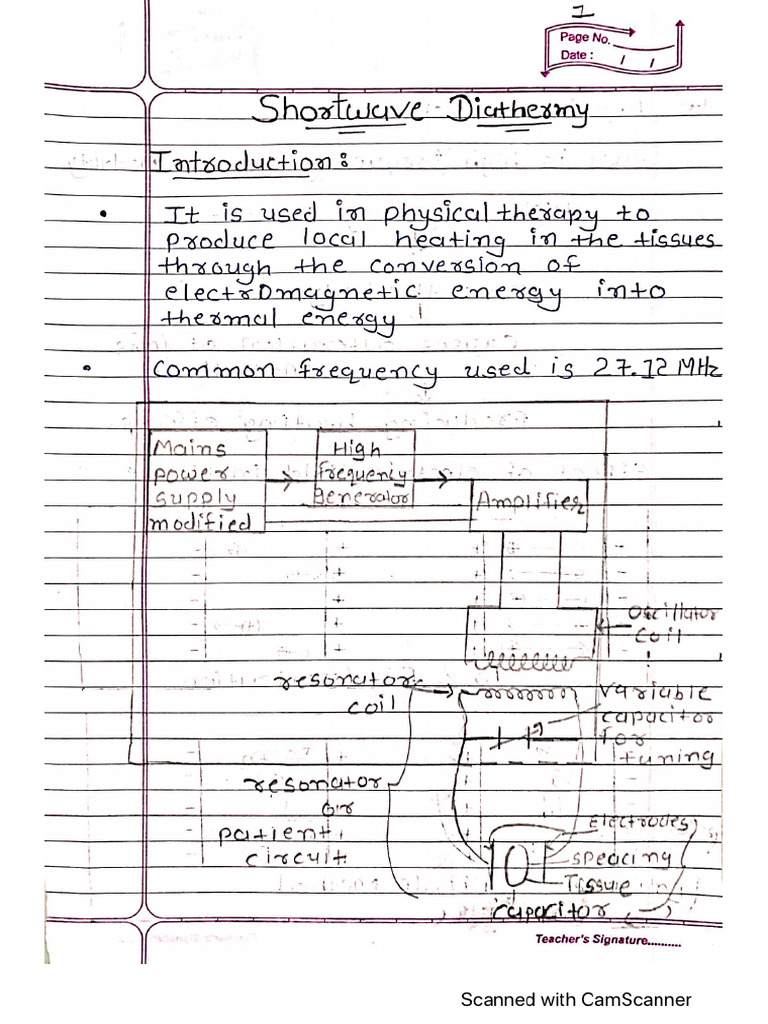 1
Page No.
Date : / /
Shortwave Diathermy
Introduction:
• It is used in physical therapy to
produce local heating in the tissues
through the conversion of
electromagnetic energy into
thermal energy
• Common frequency used is 27.12 MHz
Mains
power
supply
modified
High
frequency
generator
Amplifier
Oscillator
coil
resonator
coil
variable
capacitor
for
tuning
resonator
or
patient
circuit
Electrodes
speacing
Tissue
capacitor
Teacher's Signature..........
Scanned with CamScanner